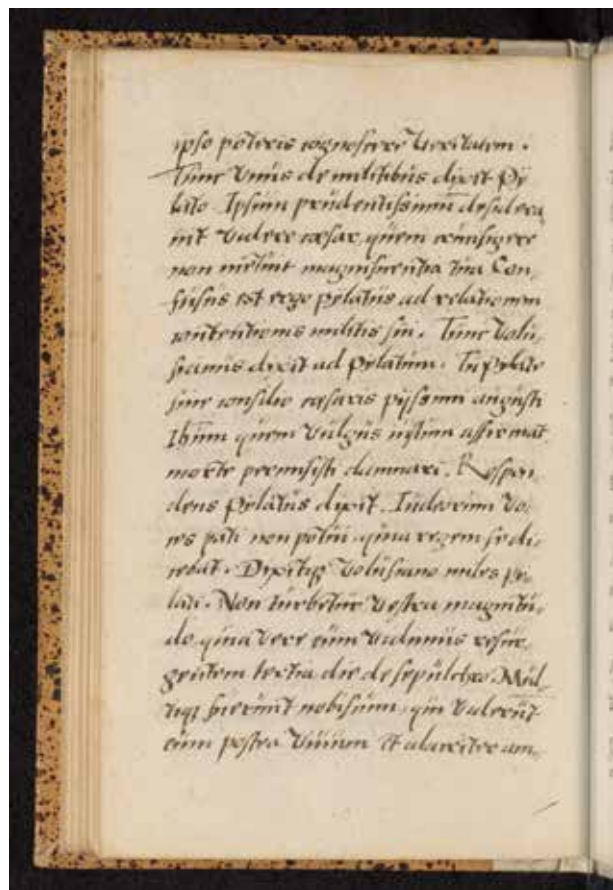 ipso poteris cognoscere veritatem.
Tunc Vnus de militibus dixit Py
lato. Ipsum prudentissimū desidera
uit Videre cæsar, quem crucifigere
non metuit magnificentia tua Con
fusus est ergo pylatus ad relationem
contentionis militis sui. Tunc Volu
sianus dixit ad pylatum. Tu pylate
sine consilio cæsaris pijssimi augusti
Ihūm quem Vulgus iustum affirmat
morte permisisti damnari. Respon
dens pylatus dixit. Iudeorum Vo
ces pati non potui, quia regem se di
cebat. Dixitqȝ Volusiano miles pi
lati. Non turbetur Vestra magnitu
do, quia Vere eum Vidimus resur
gentem tertia die de sepulchro. Mul
tiqȝ fuerunt nobiscum, qui Viderūt
eum postea Viuum et alacriter am,